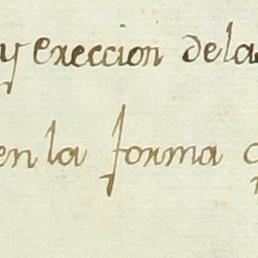 y ereccion dela
en la forma